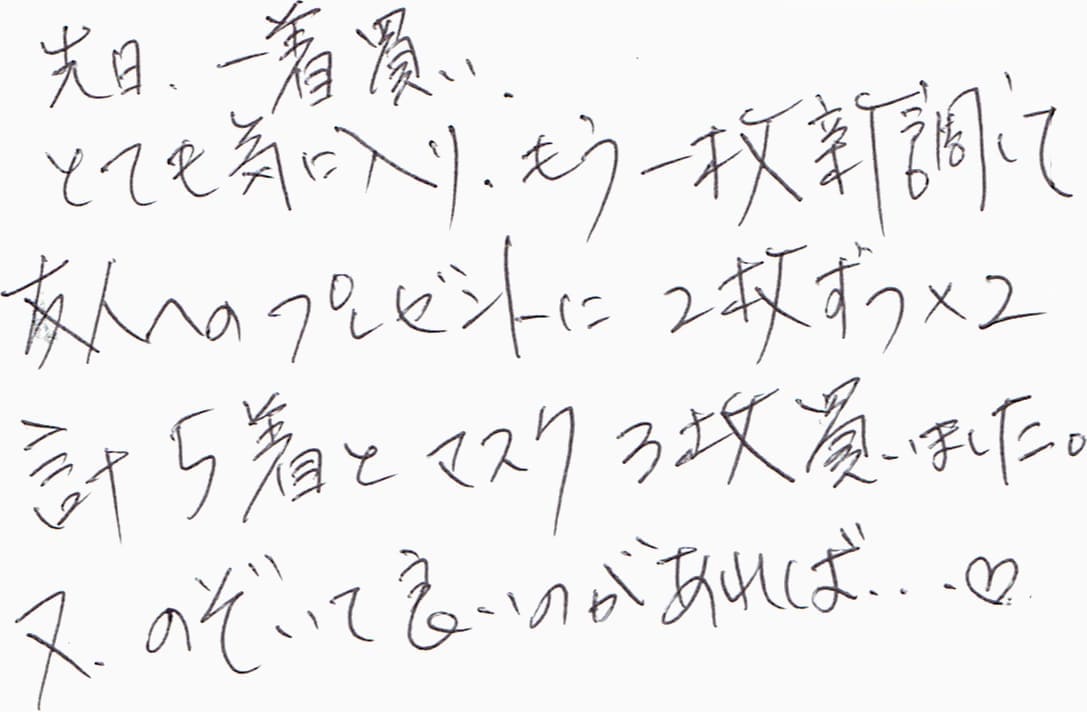 先日、一着買い、
とても気に入り、もう一枚新調して
友人へのプレゼントに 2枚ずつ×2
計5着とマスク3枚買いました。
又、のぞいて良いのがあれば...♡